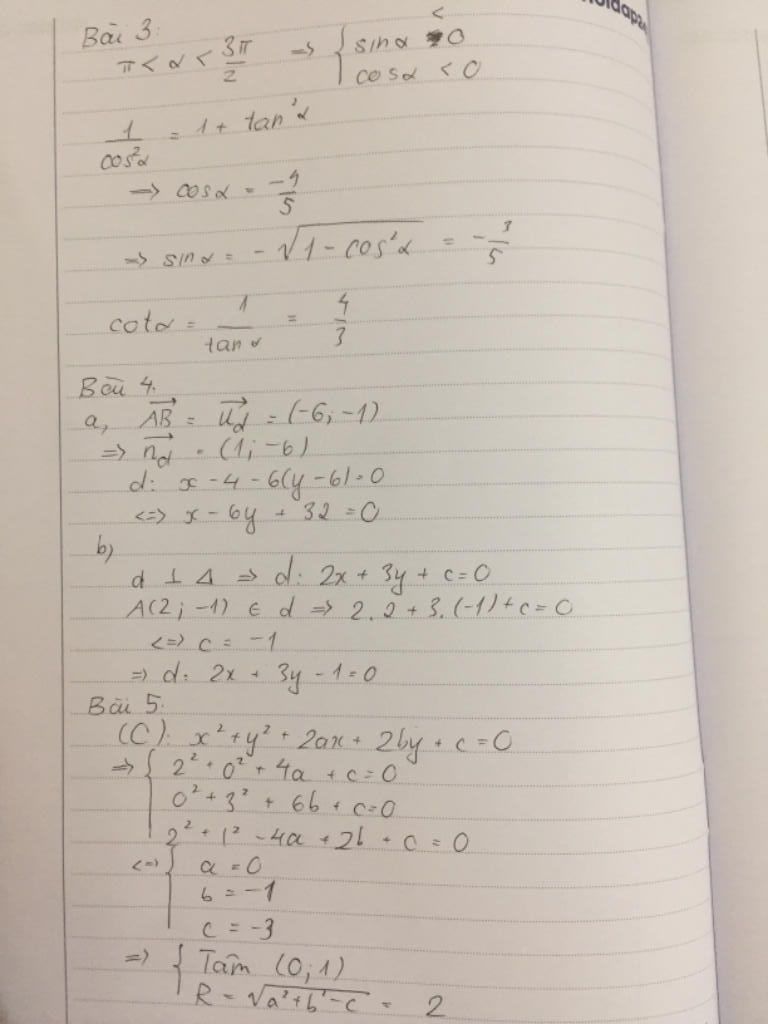 Bài 3:
π < α < 3π/2 => { sinα < 0
cosα < 0
1/cos²α = 1 + tan²α
=> cosα = -4/5
=> sinα = -√(1 - cos²α) = -3/5
cotα = 1/tanα = 4/3
Bài 4.
a, AB→ = u_d→ = (-6; -1)
=> n_d→ = (1; -6)
d: x - 4 - 6(y - 6) = 0
<=> x - 6y + 32 = 0
b)
d ⊥ Δ => d: 2x + 3y + c = 0
A(2; -1) ∈ d => 2.2 + 3.(-1) + c = 0
<=> c = -1
=> d: 2x + 3y - 1 = 0
Bài 5:
(C): x² + y² + 2ax + 2by + c = 0
=> { 2² + 0² + 4a + c = 0
0² + 3² + 6b + c = 0
2² + 1² - 4a + 2b + c = 0
<=> { a = 0
b = -1
c = -3
=> { Tâm (0; 1)
R = √(a² + b² - c) = 2